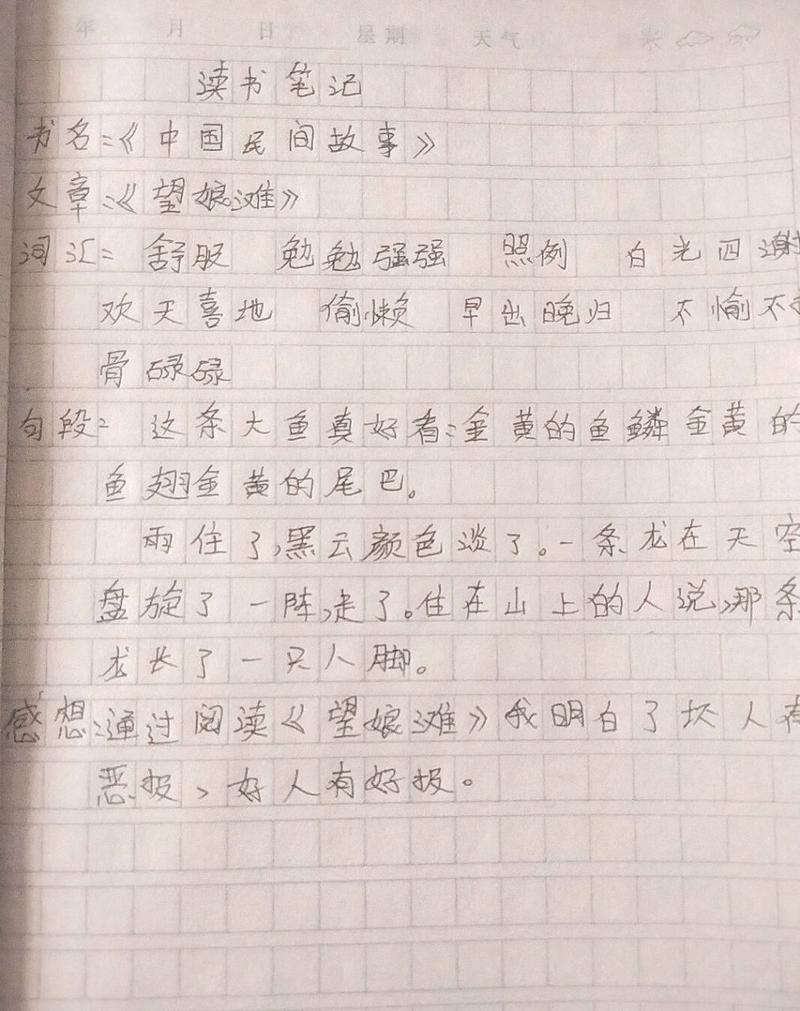 年 月 日 星期 天气
读书笔记
书名：《中国民间故事》
文章：《望娘滩》
词汇： 舒服 勉勉强强 照例 白光四
欢天喜地 偷懒 早出晚归 不愉不
骨碌碌
句段： 这条大鱼真好看：金黄的鱼鳞金黄的
鱼翅金黄的尾巴。
雨住了，黑云颜色淡了。一条龙在天空
盘旋了一阵，走了。住在山上的人说，那条
龙长了一只人脚。
感想：通过阅读《望娘滩》我明白了坏人有
恶报、好人有好报。